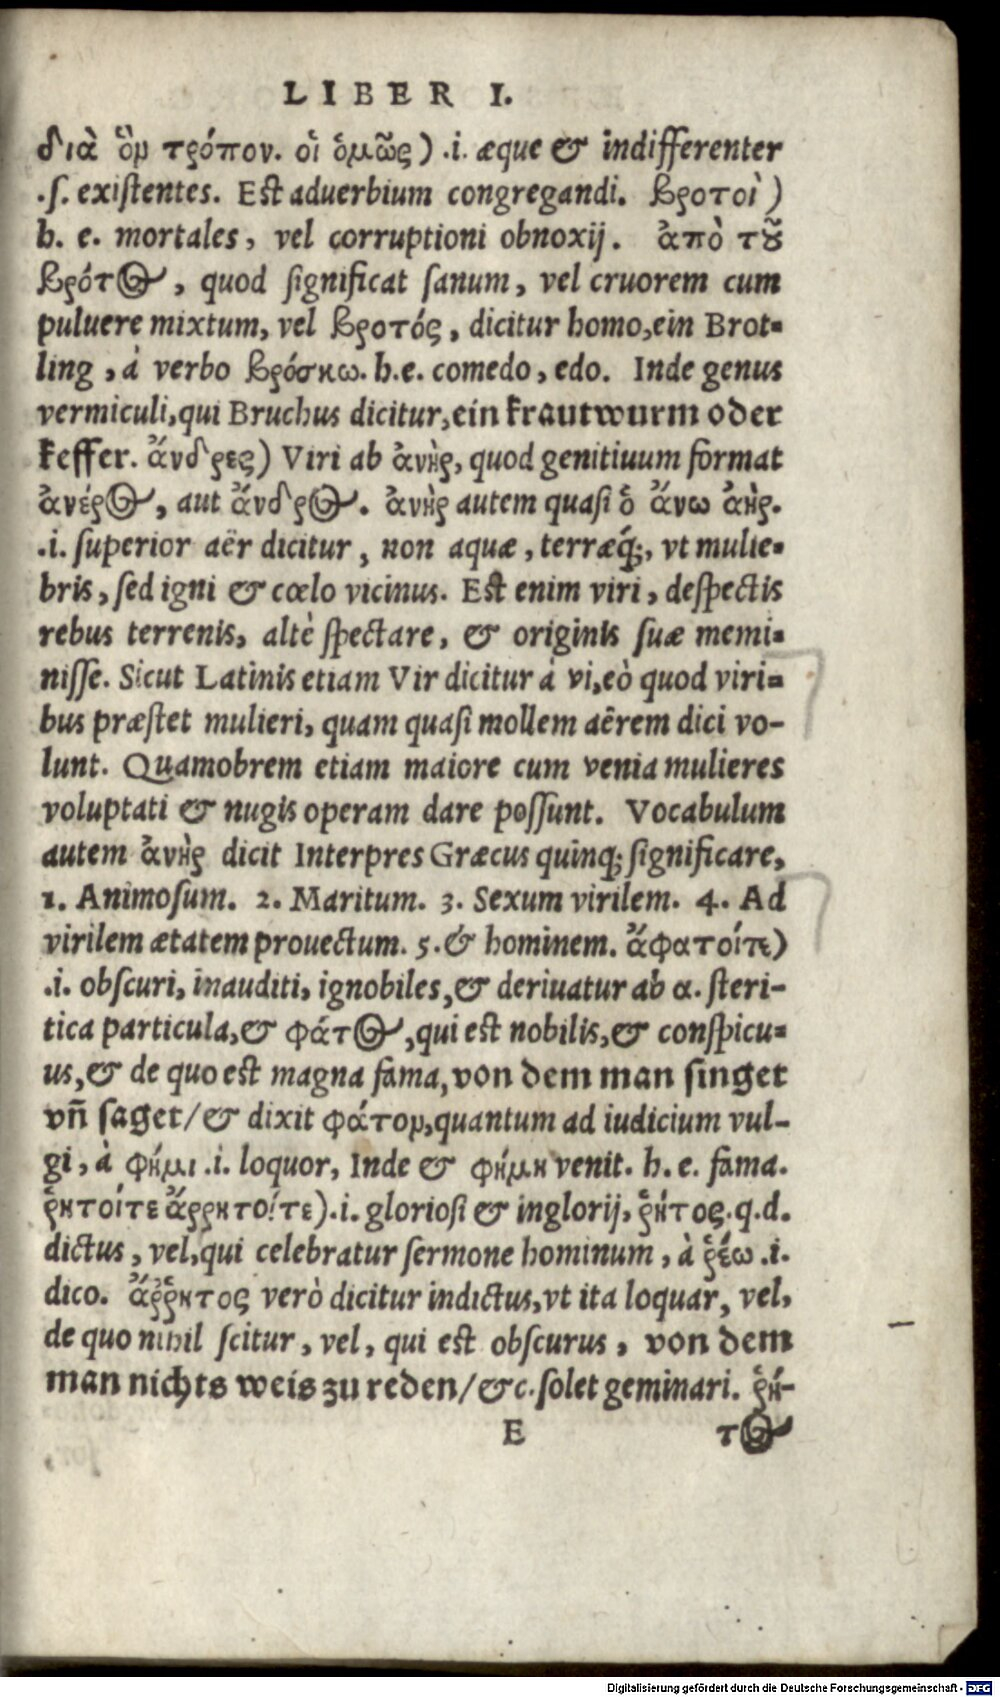 LIBER I.
διὰ ὃν τρόπον. οἱ ὁμῶς) .i. æque & indifferenter
.ſ. exiſtentes. Eſt aduerbium congregandi. βροτοὶ)
h. e. mortales, vel corruptioni obnoxij. ἀπὸ τȣ͂
βρότος, quod ſignificat ſanum, vel cruorem cum
puluere mixtum, vel βροτός, dicitur homo, ein Brot-
ling, à verbo βρόσκω. h.e. comedo, edo. Inde genus
vermiculi, qui Bruchus dicitur, ein krautwurm oder
keffer. ἄνδρες) Viri ab ἀνὴρ, quod genitiuum format
ἀνέρος, aut ἄνδρος. ἀνὴρ autem quaſi ὁ ἄνω ἀὴρ.
.i. ſuperior aër dicitur, non aquæ, terræq́;, vt mulie-
bris, ſed igni & cœlo vicinus. Eſt enim viri, deſpectis
rebus terrenis, altè ſpectare, & originis ſuæ memi-
niſſe. Sicut Latinis etiam Vir dicitur à vi, eò quod viri-
bus præſtet mulieri, quam quaſi mollem aërem dici vo-
lunt. Quamobrem etiam maiore cum venia mulieres
voluptati & nugis operam dare poſſunt. Vocabulum
autem ἀνὴρ dicit Interpres Græcus quinq; ſignificare,
1. Animoſum. 2. Maritum. 3. Sexum virilem. 4. Ad
virilem ætatem prouectum. 5. & hominem. ἄφατοίτε)
.i. obſcuri, inauditi, ignobiles, & deriuatur ab α. ſteri-
tica particula, & φάτος, qui eſt nobilis, & conſpicu-
us, & de quo eſt magna fama, von dem man ſinget
vñ ſaget/ & dixit φάτον, quantum ad iudicium vul-
gi, à φήμι .i. loquor, Inde & φήμη venit. h. e. fama.
ῥητοίτε ἄρρητοίτε) .i. glorioſi & inglorij, ῥήτος. q.d.
dictus, vel, qui celebratur ſermone hominum, à ῥέω .i.
dico. ἄῤῥητος verò dicitur indictus, vt ita loquar, vel,
de quo nihil ſcitur, vel, qui eſt obſcurus, von dem
man nichts weis zu reden/ &c. ſolet geminari. ῥή-
E τος
Digitalisierung gefördert durch die Deutsche Forschungsgemeinschaft - DFG